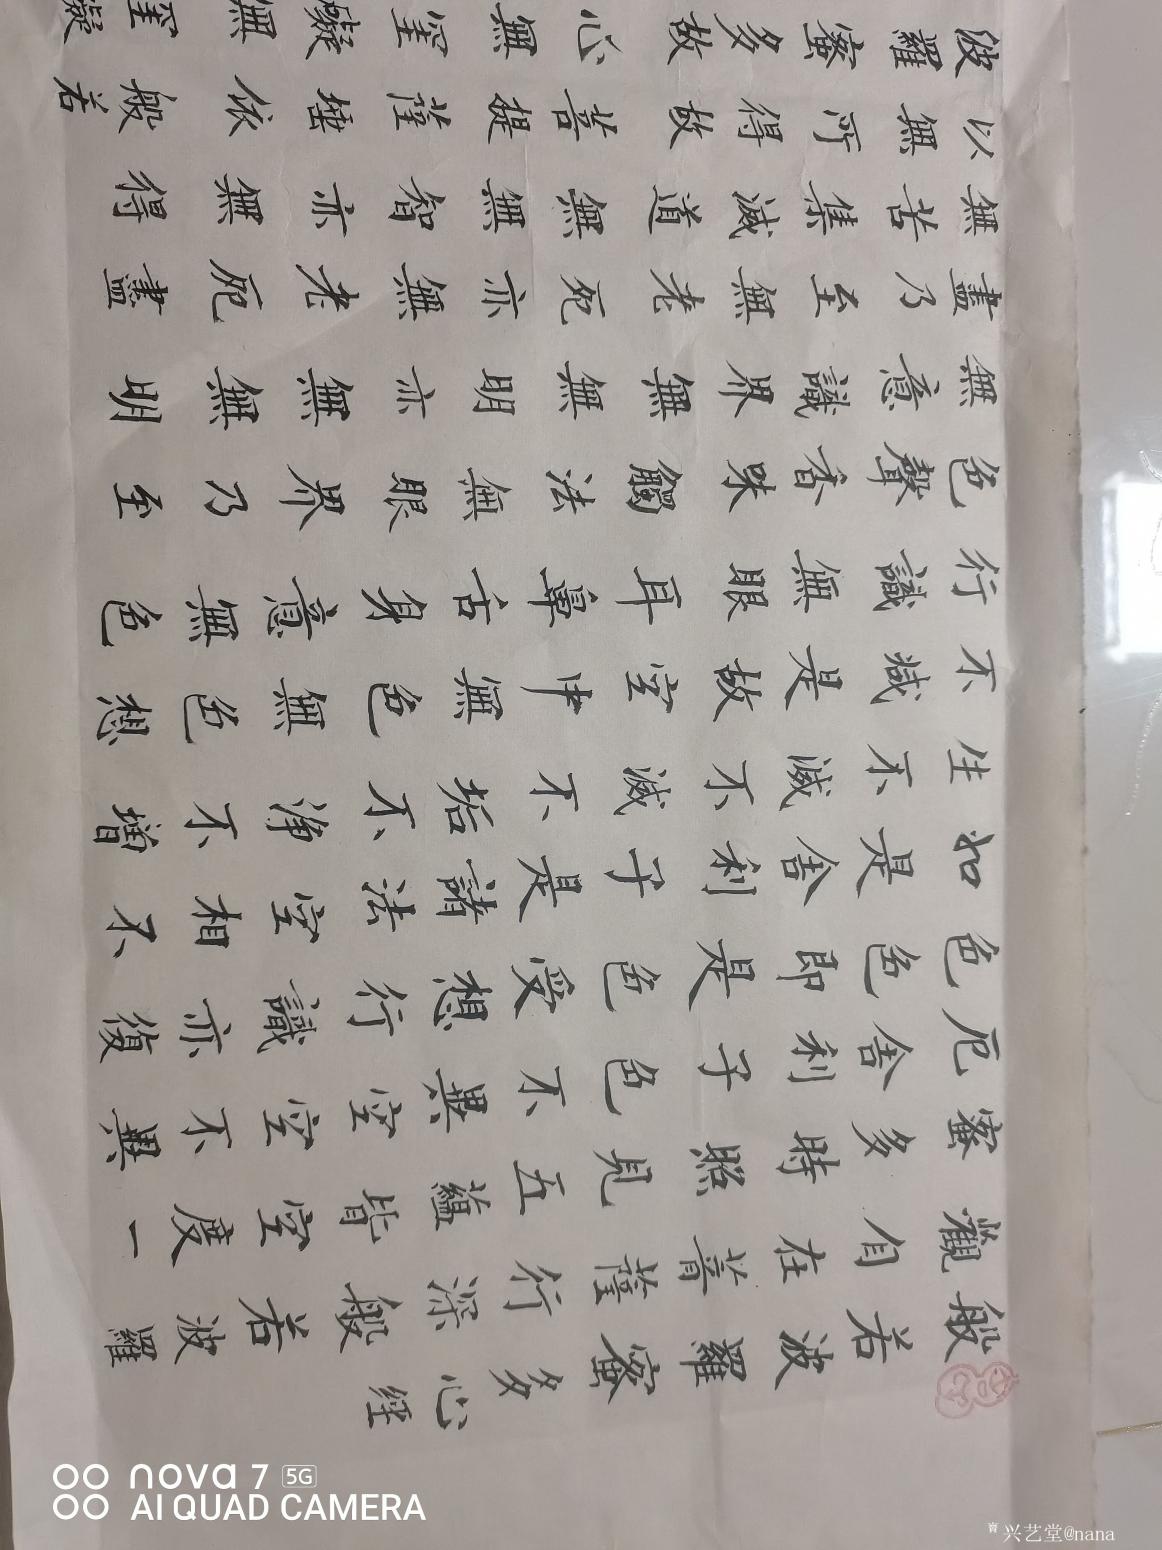 般若波羅蜜多心經
觀自在菩薩行深般若波羅
蜜多時照見五蘊皆空度一
厄舍利子色不異空空不異
色色即是色受想行識亦復
如是舍利子是諸法空相不
生不滅不滅不垢不淨不增
不減是故空中無色無色想
行識無眼耳鼻舌身意無色
色聲香味觸法無眼界乃至
無意識界無無明亦無無明
盡乃至無老死亦無老死盡
無苦集滅道無無智亦無得
以無所得故菩提薩埵依般若
波羅蜜多故心無罣礙無罣礙
nova 7 5G
AI QUAD CAMERA
兴艺堂@nana